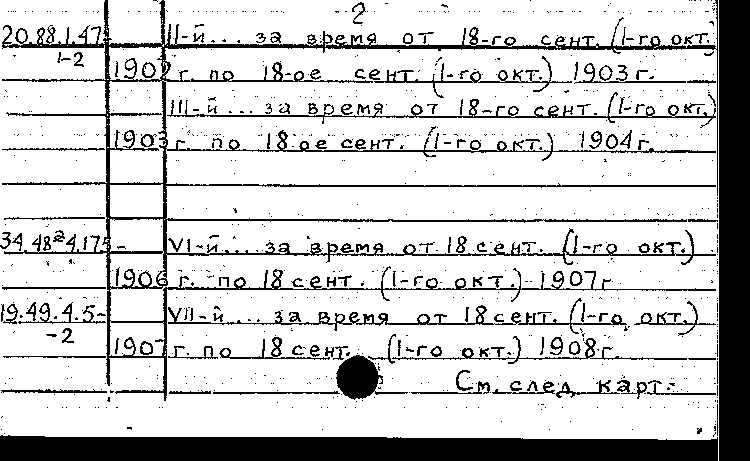 2
20.88.1.47- II-й... за время от 18-го сент. (1-го окт.
1-2
1902 г. по 18-ое сент. (1-го окт.) 1903 г.
III-й... за время от 18-го сент. (1-го окт.)
1903 г. по 18 ое сент. (1-го окт.) 1904 г.
34.48²4.175- VI-й... за время от 18 сент. (1-го окт.)
1906 г. по 18 сент. (1-го окт.) 1907 г
19.49.4.5- VII-й... за время от 18 сент. (1-го окт.)
-2
1907 г. по 18 сент. (1-го окт.) 1908 г.
См. след. карт.